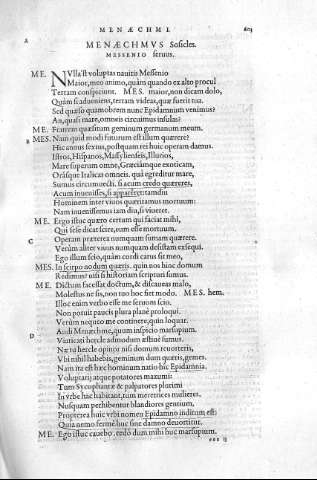 MENÆCHMI.
A
MENÆCHMVS Sosicles.
MESSENIO seruus.
ME. NVlla'st voluptas nauitis Messenio
Maior, meo animo, quàm quando ex alto procul
Terram conspiciunt. MES. maior, non dicam dolo,
Quàm si adueniens, terram videas, quæ fuerit tua.
Sed quæso quamobrem nunc Epidamnum venimus?
An, quasi mare, omneis circuimus insulas?
ME. Fratrem quæsitum geminum germanum meum.
B
MES. Nam quid modi futurum est illum quærere?
Hic annus sextus, postquam rei huic operam damus.
Istros, Hispanos, Massylienseis, Illurios,
Mare superum omne, Græciamque exoticam,
Orásque Italicas omneis, quà egreditur mare,
Sumus circumuecti, si acum credo quæreres,
Acum inuenisses, si appareret iamdiu
Hominem inter viuos quæritamus mortuum:
Nam inuenissemus iam diu, si viueret.
ME. Ergo istuc quæro certum qui faciat mihi,
Qui sese dicat scire, eum esse mortuum.
C
Operam præterea nunquam sumam quærere.
Verùm aliter viuus nunquam desistam exsequi.
Ego illum scio, quàm cordi carus sit meo,
MES. In scirpo nodum quæris. quin nos hinc domum
Redimus? nisi si historiam scripturi sumus.
ME. Dictum facessas doctum, & discaueas malo,
Molestus ne sis, non tuo hoc fiet modo. MES. hem.
Illoc enim verbo esse me seruom scio,
Non potuit paucis plura planè proloqui.
Verùm nequeo me continere, quin loquar.
Audi Menæchme, quum inspicio marsupium,
D
Viaticati hercle admodum æstiuè sumus.
Næ tu hercle opinor nisi domum reuorteris,
Vbi nihil habebis, geminum dum quæris, gemes.
Nam ita est hæc hominum natio hîc, Epidamnia.
Voluptarij atque potatores maxumi:
Tum Sycophantæ & palpatores plurimi
In vrbe hac habitant, tum meretrices mulieres.
Nusquam perhibentur blandiores gentium,
Propterea huic vrbi nomen Epidamno inditum est:
Quia nemo fermè huc sine damno deuortitur.
ME. Ego istuc cauebo. cedò dum mihi huc marsupium.